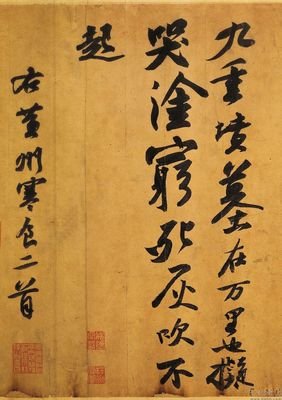 九重墳墓在万里也擬
哭塗窮死灰吹不
起
右黄州寒食二首